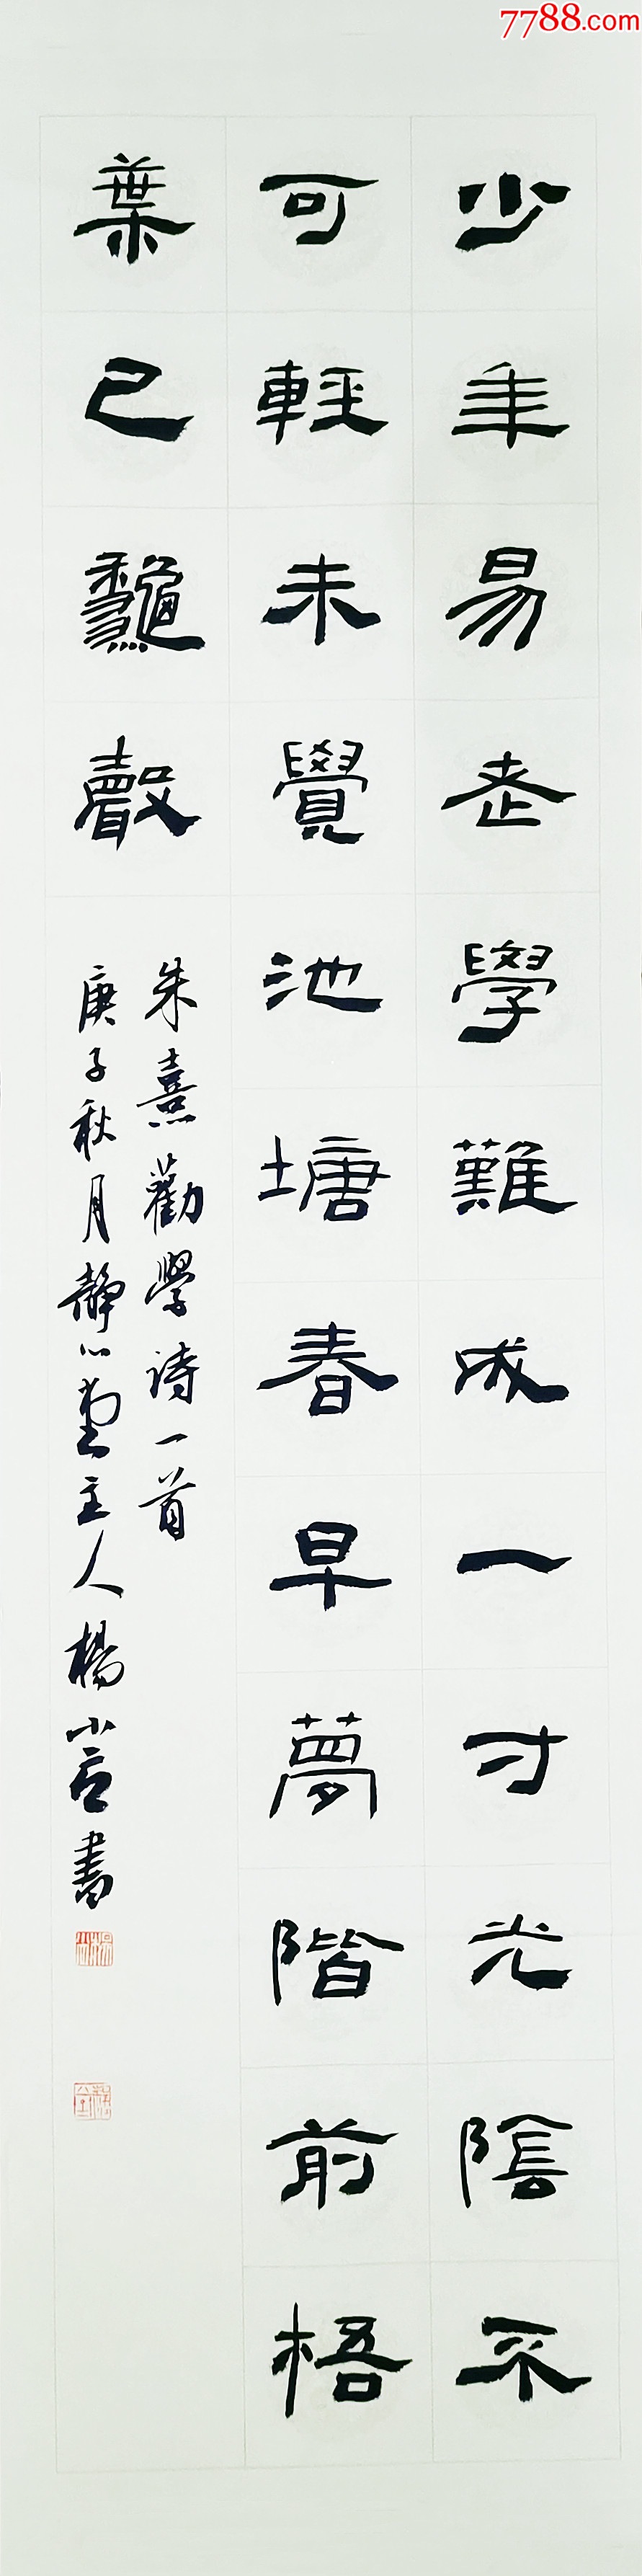 7788.com
少年易老學難成一寸光陰不
可輕未覺池塘春早夢階前梧
葉已龝聲
朱熹勸學詩一首
庚子秋月靜心堂主人楊書